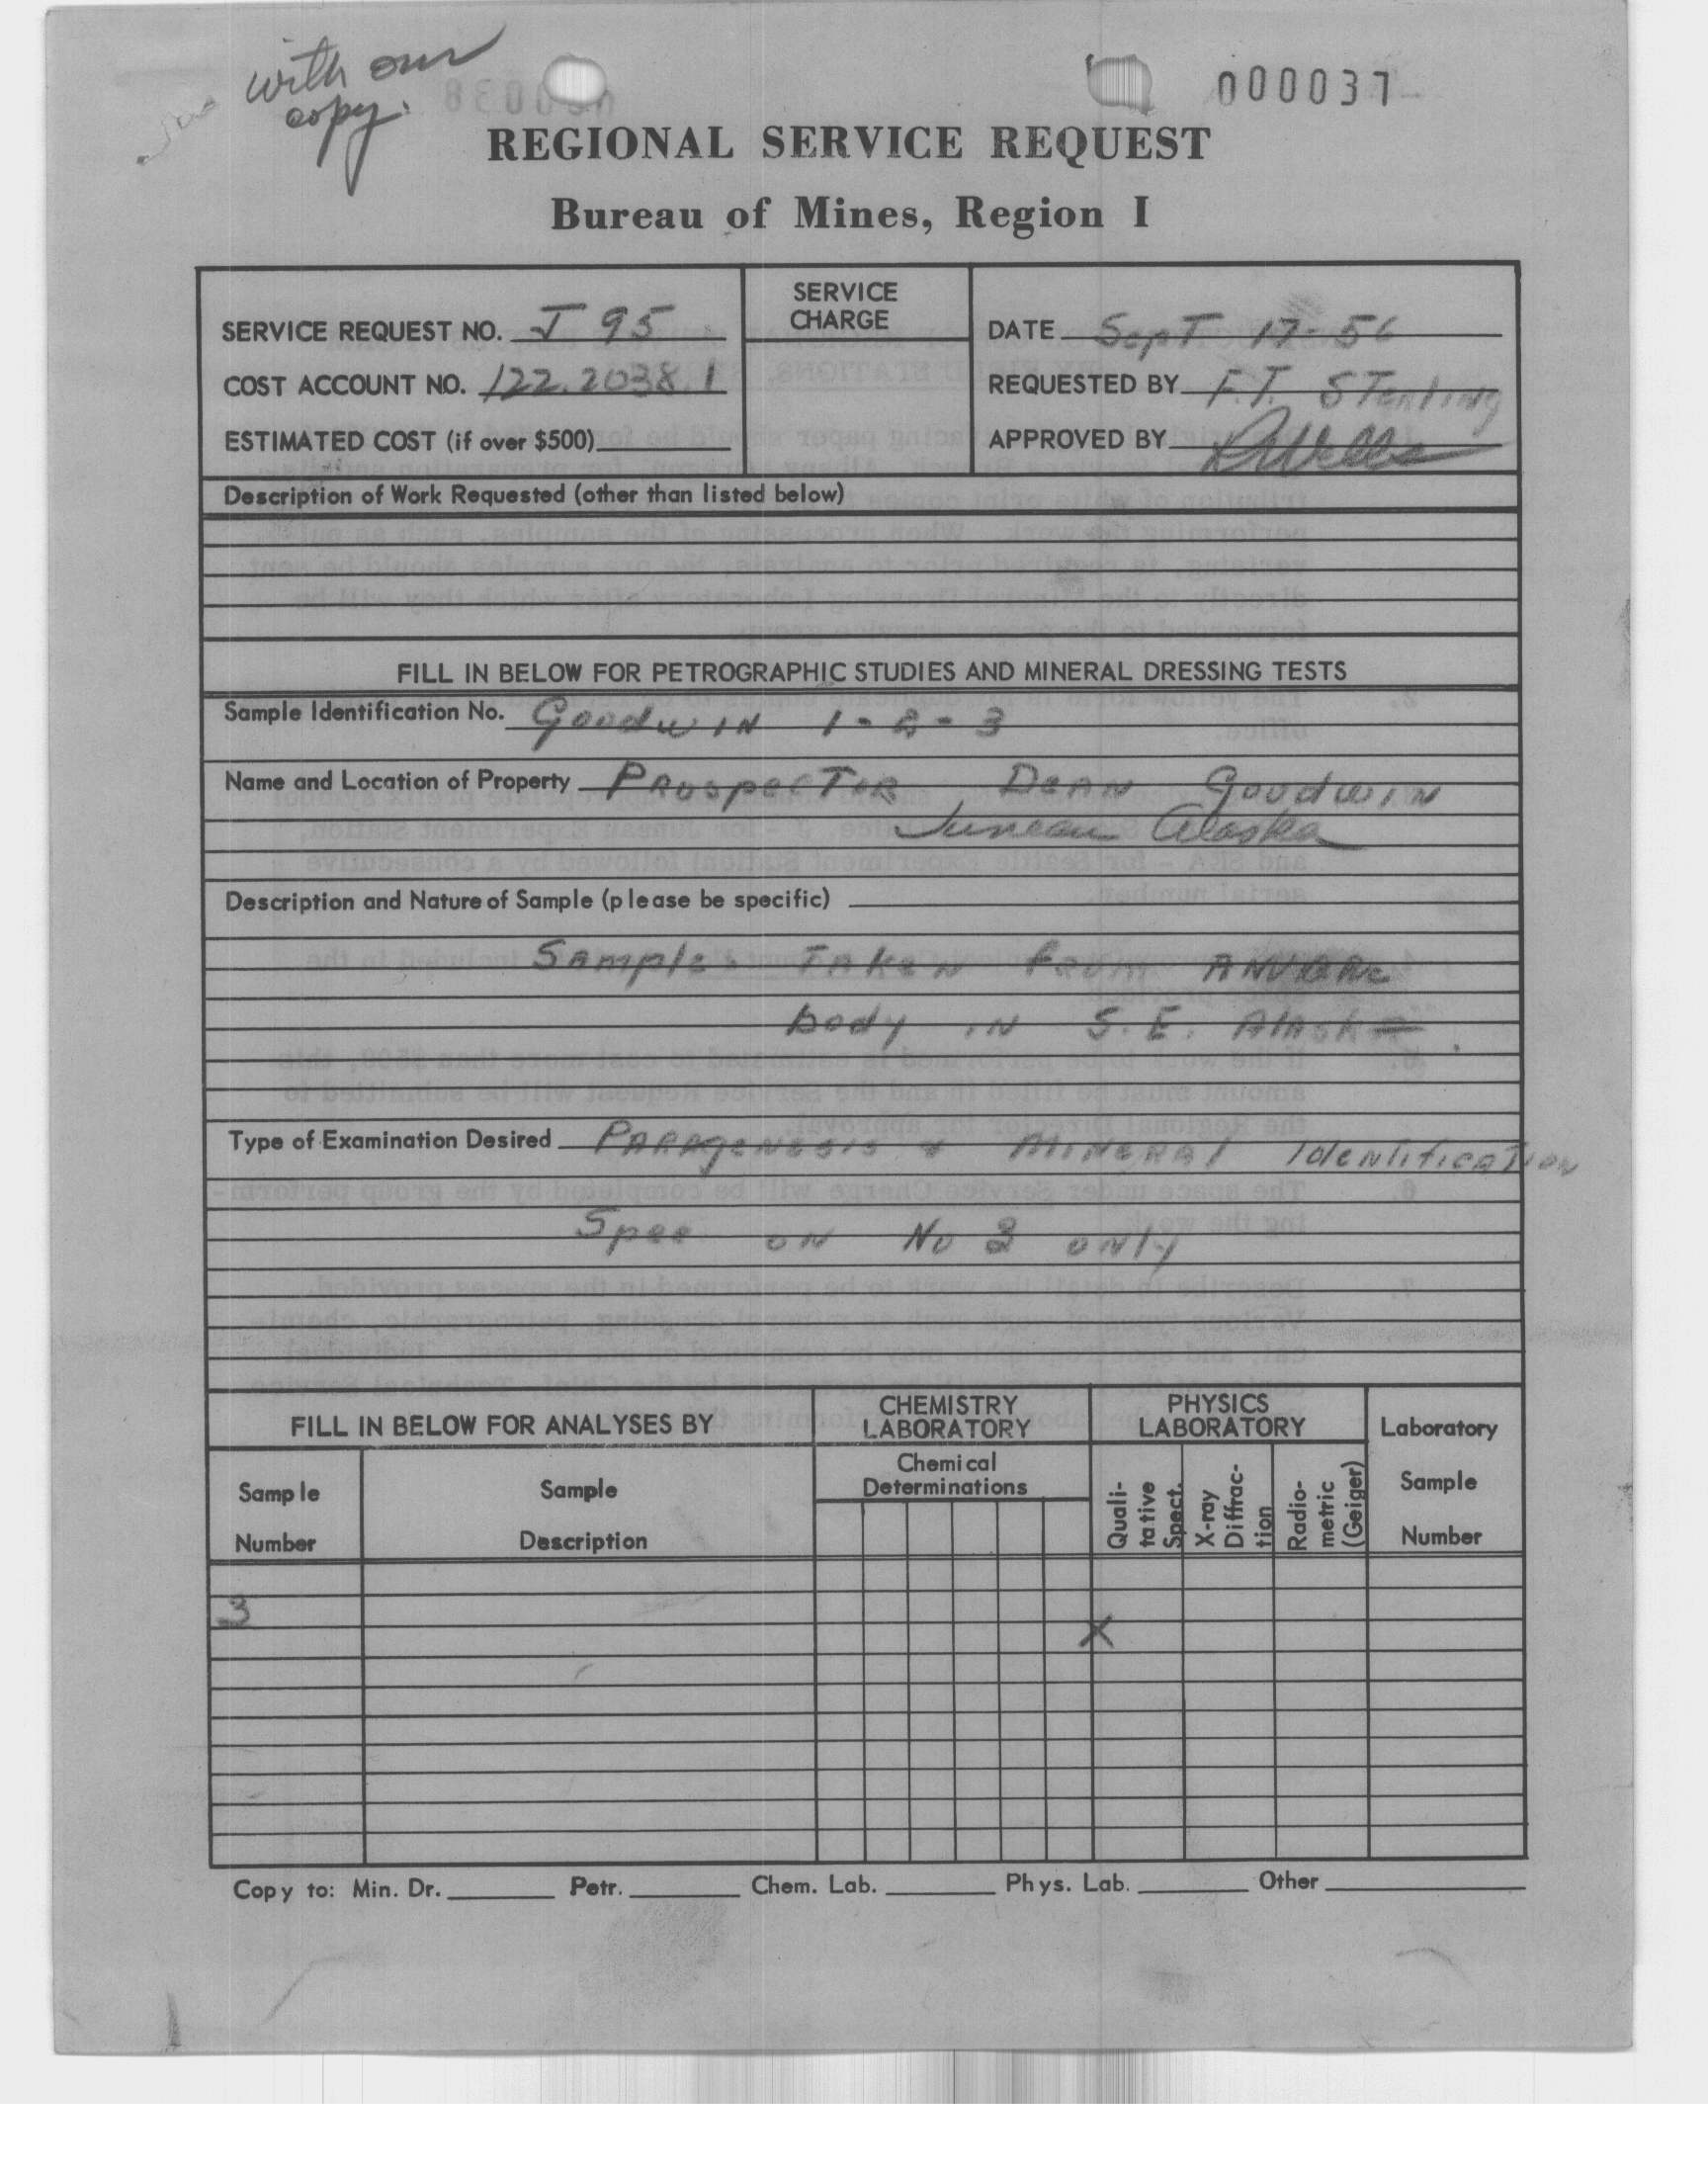 with our
copy.
000037
REGIONAL SERVICE REQUEST
Bureau of Mines, Region I
SERVICE REQUEST NO. J 95
COST ACCOUNT NO. 122.2038.1
ESTIMATED COST (if over $500)
SERVICE
CHARGE
DATE Sept 17-56
REQUESTED BY F.T. Sterling
APPROVED BY RWells
Description of Work Requested (other than listed below)
FILL IN BELOW FOR PETROGRAPHIC STUDIES AND MINERAL DRESSING TESTS
Sample Identification No. Goodwin 1-2-3
Name and Location of Property Prospector Dean Goodwin
Juneau Alaska
Description and Nature of Sample (please be specific)
Samples Taken from
body in S.E. Alaska.
Type of Examination Desired Paragenesis & Mineral Identification
Spec on No 3 only
FILL IN BELOW FOR ANALYSES BY
CHEMISTRY
LABORATORY
PHYSICS
LABORATORY
Laboratory
Sample
Number
Sample
Number
Sample
Description
Chemical
Determinations
Quali-
tative
Spect.
X-ray
Diffrac-
tion
Radio-
metric
(Geiger)
3
X
Copy to: Min. Dr. Petr. Chem. Lab. Phys. Lab. Other